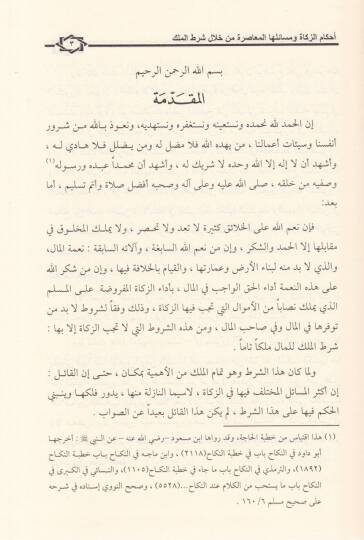 أحكام الزكاة ومسائلها المعاصرة من خلال شرط الملك
٣
بسم الله الرحمن الرحيم
المقدّمة
إن الحمد لله نحمده ونستعينه ونستغفره ونستهديه، ونعوذ بالله من شرور
أنفسنا وسيئات أعمالنا ، من يهده الله فلا مضل له ومن يضلل فلا هادي له ،
وأشهد أن لا إله إلا الله وحده لا شريك له ، وأشهد أن محمداً عبده ورسوله(١)
وصفيه من خلقه ، صلى الله عليه وعلى آله وصحبه أفضل صلاة وأتم تسليم ، أما
بعد:
فإن نعم الله على الخلائق كثيرة لا تعد ولا تحصر ، ولا يملك المخلوق في
مقابلها إلا الحمد والشكر ، وإن من نعم الله السابغة ، وآلائه السابقة : نعمة المال،
والذي لا بد منه لبناء الأرض وعمارتها ، والقيام بالخلافة فيها ، وإن من شكر الله
على هذه النعمة أداء الحق الواجب في المال ، بأداء الزكاة المفروضة على المسلم
الذي يملك نصاباً من الأموال التي تجب فيها الزكاة ، وذلك وفقاً لشروط لا بد من
توفرها في المال وفي صاحب المال ، ومن هذه الشروط التي لا تجب الزكاة إلا بها :
شرط الملك للمال ملكاً تاماً .
ولما كان هذا الشرط وهو تمام الملك من الأهمية بمكان ، حتى إن القائل :
إن أكثر المسائل المختلف فيها في الزكاة ، لاسيما النازلة منها ، يدور فلكها وينبني
الحكم فيها على هذا الشرط ، لم يكن هذا القائل بعيداً عن الصواب .
(١) هذا اقتباس من خطبة الحاجة، وقد رواها ابن مسعود -رضي الله عنه- عن النبي ﷺ : أخرجها
أبو داود في النكاح باب في خطبة النكاح(٢١١٨) ، وابن ماجه في النكاح باب خطبة النكاح
(١٨٩٢)، والترمذي في النكاح باب ما جاء في خطبة النكاح(١١٠٥)، والنسائي في الكبرى في
النكاح باب ما يستحب من الكلام عند النكاح...(٥٥٢٨) ، وصحح النووي إسناده في شرحه
على صحيح مسلم ١٦٠/٦ .